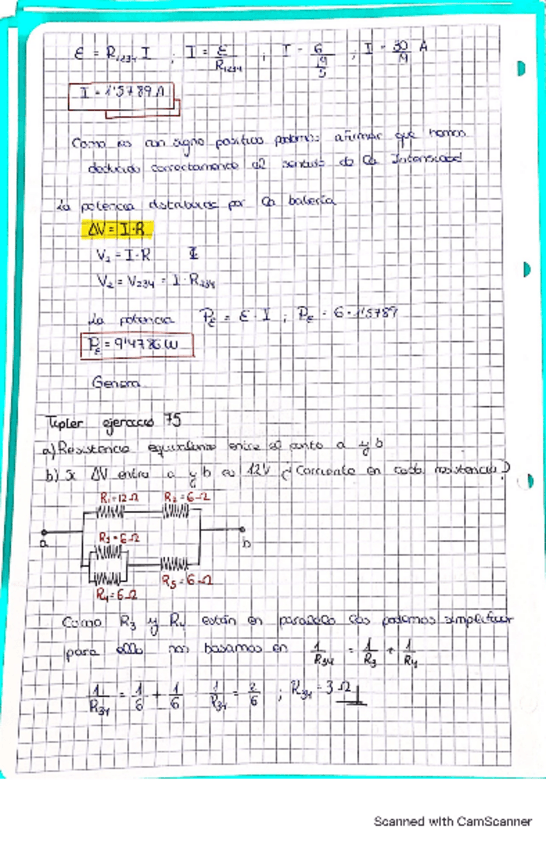 ε = R₁₂₃₄ I ; I = ε/R₁₂₃₄ ; I = 6/(19/5) ; I = 30/19 A
I = 1'5789 A
Como es con signo positivo podemos afirmar que hemos
deducido correctamente el sentido de la Intensidad
La potencia por la batería
ΔV = I·R
V₁ = I·R
V₂ = V₂₃₄ = I·R₂₃₄
La potencia P_ε = ε·I ; P_ε = 6·1'5789
P_ε = 9'4736 W
Genera
Tipler ejercicio 75
a) Resistencia equivalente entre el punto a y b
b) Si ΔV entre a y b es 12V ¿Corriente en cada resistencia?
R₁=12Ω R₂=6Ω
a b
R₃=6Ω
R₄=6Ω R₅=6Ω
Como R₃ y R₄ están en paralelo las podemos simplificar
para ello nos basamos en 1/R₃₄ = 1/R₃ + 1/R₄
1/R₃₄ = 1/6 + 1/6 1/R₃₄ = 2/6 ; R₃₄ = 3Ω
Scanned with CamScanner